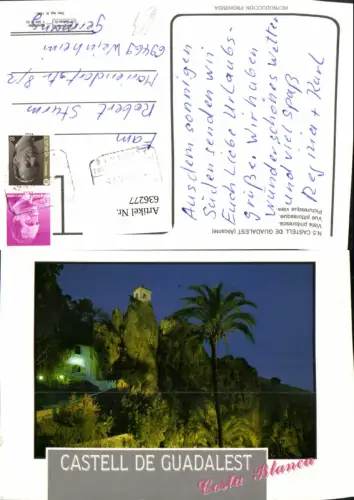 REPRODUCCION PROHIBIDA
Aus dem sonnigen
Süden senden wir
Euch liebe Urlaubs-
grüße. Wir haben
wunderschönes Wetter
und viel Spaß
Regina + Karl
N.5 CASTELL DE GUADALEST (Alicante)
Vista pintoresca.
Vue pittoresque.
Picturesque view.
Fam
Robert Sturm
69469 Weinheim
Germany
Artikel Nr.
636277
CASTELL DE GUADALEST
Costa Blanca